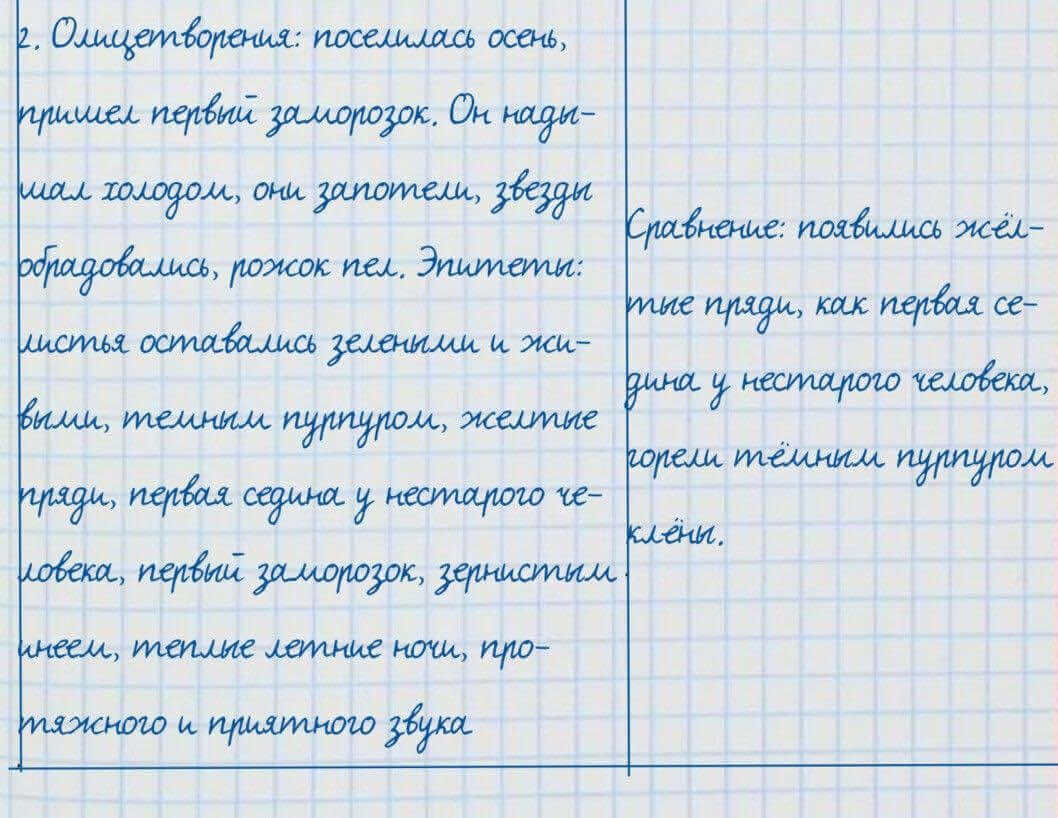 2. Олицетворения: поселилась осень,
пришел первый заморозок. Он нады-
шал холодом, они запотели, звезды
обрадовались, рожок пел. Эпитеты:
листья оставались зелеными и жи-
выми, темным пурпуром, желтые
пряди, первая седина у нестарого че-
ловека, первый заморозок, зернистым
инеем, теплые летние ночи, про-
тяжного и приятного звука
Сравнение: появились жёл-
тые пряди, как первая се-
дина у нестарого человека,
горели тёмным пурпуром
клёны.